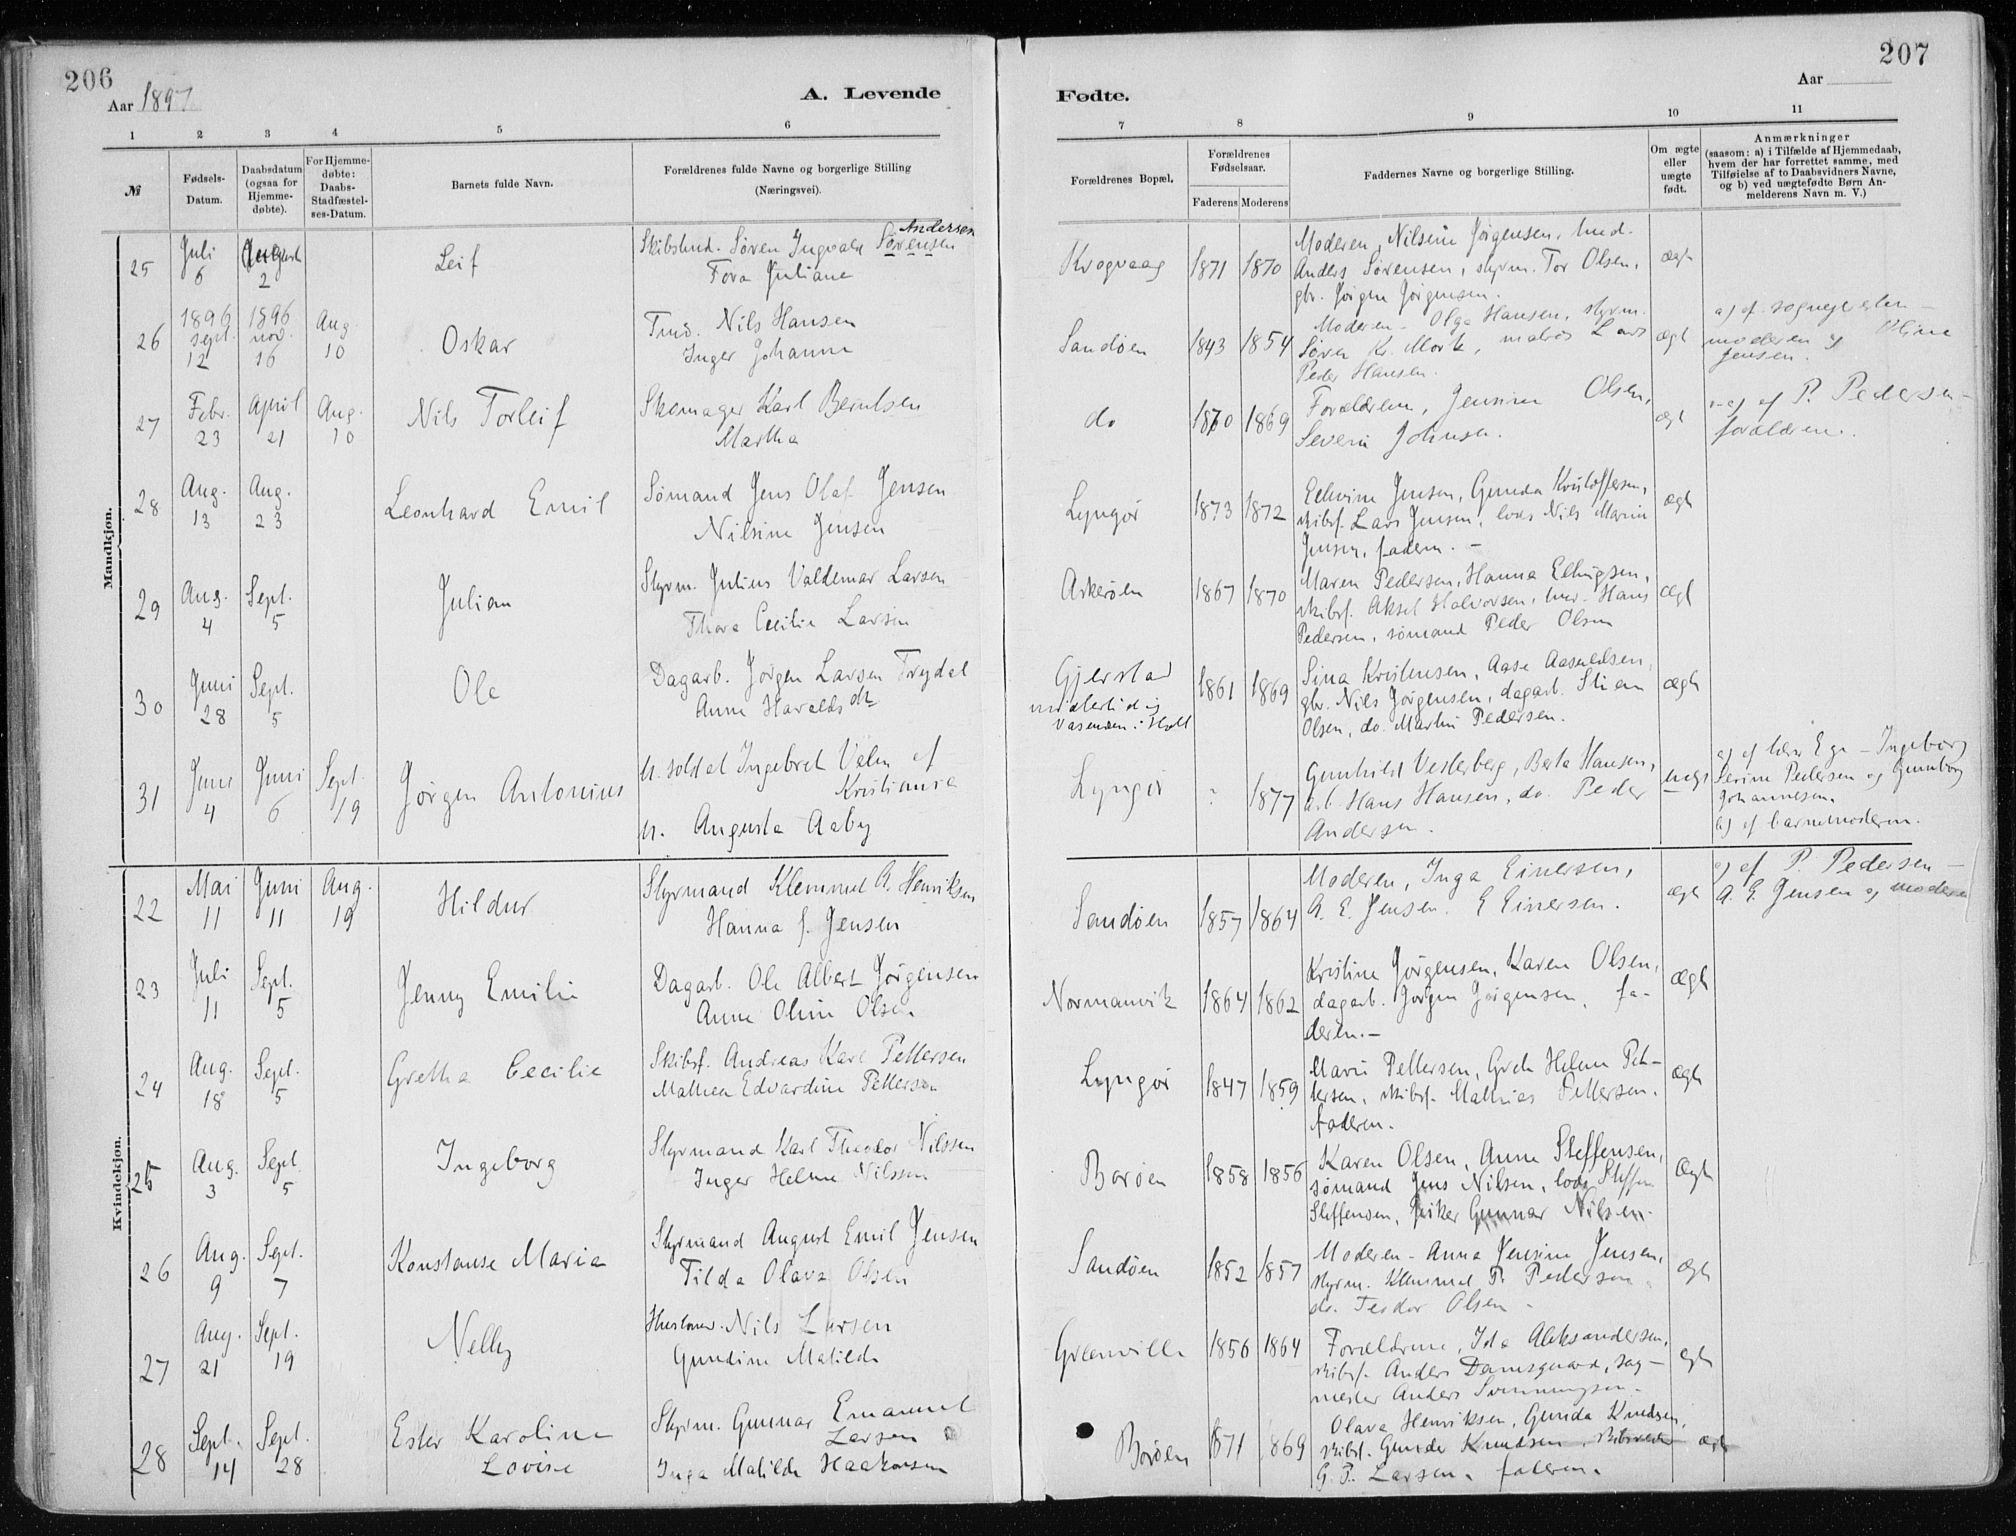 206
Aar 1897
A. Levende
1 2 3 4 5 6
№
Fødsels-
Datum.
Daabsdatum
(ogsaa for
Hjemme-
døbte).
For Hjemme-
døbte:
Daabs-
Stadfæstel-
ses-Datum.
Barnets fulde Navn.
Forældrenes fulde Navne og borgerlige Stilling
(Næringsvei).
207
Aar
Fødte.
7 8 9 10 11
Forældrenes Bopæl.
Forældrenes
Fødselsaar.
Faderens Moderens
Faddernes Navne og borgerlige Stilling.
Om ægte
eller
uægte
født.
Anmærkninger
(saasom: a) i Tilfælde af Hjemmedaab,
hvem der har forrettet samme, med
Tilføielse af to Daabsvidners Navne,
og b) ved uægtefødte Børn An-
melderens Navn m. V.)
Mandkjøn.
25 Juli 6 August 2 Leif
Andersen
Skibstmd. Søren Ingvald Sørensen
Tora Juliane
Krogvaag 1871 1870
Moderen, Nilsine Jørgensen, tmd.
Anders Sørensen, styrm. Tor Olsen,
gbr. Jørgen Jørgensen.
ægte
26 1896 sept. 12 1896 nov. 16 Aug. 10 Oskar
Tmd. Nils Hansen
Inger Johanne
Sandøen 1843 1854
Moderen - Olga Hansen, styrm.
Søren Kr. Mork, matros Lars
Peder Hansen.
ægte
a) af sognepresten -
moderen og Oline
Jensen.
27 Febr. 23 April 21 Aug. 10 Nils Torleif
Skomager Karl Berntsen
Martha
do 1870 1869
Forældrene, Jensine Olsen,
Severin Johnsen.
ægte
a) af P. Pedersen -
forældrene.
28 Aug. 13 Aug. 23 Leonhard Emil
Sømand Jens Olaf Jensen
Nilsine Jensen
Lyngør 1873 1872
Edvine Jensen, Gunda Kristoffersen,
skibsf. Lars Jensen, lods Nils Marin
Jensen, faderen. -
ægte
29 Aug. 4 Sept. 5 Julian
Styrm. Julius Valdemar Larsen
Thora Cecilie Larsen
Askerøen 1867 1870
Maren Pedersen, Hanna Ellingsen,
skibsf. Aksel Halvorsen, Hans
Pedersen, sømand Peder Olsen
ægte
30 Juni 28 Sept. 5 Ole
Dagarb. Jørgen Larsen Trydal
Anne Haraldsdtr
Gjerstad
midlertidig
Vasenden i Holt
1861 1869
Sina Kristensen, Aase Aasuldsen,
gbr. Nils Jørgensen, dagarb. Stian
Olsen, do. Martin Pedersen.
ægte
31 Juni 4 Juni 6 Sept. 19 Jørgen Antonius
U. soldat Ingebret Velm af
Kristiania
U. Augusta Aaby
Lyngør ? 1877
Gunhild Vesterberg, Berta Hansen,
arb. Hans Hansen, do. Peder
Andersen.
uægte
a) af lærer Ege - Ingeborg
Serine Pedersen og Gunborg
Johannesen.
b) af barnemoderen.
Kvindekjøn.
22 Mai 11 Juni 11 Aug. 19 Hildur
Styrmand Klemmet A. Henriksen
Hanna f. Jensen
Sandøen 1857 1864
Moderen, Inga Einersen,
A. E. Jensen. E Einersen.
ægte
a) af P. Pedersen -
A. E. Jensen og moderen
23 Juli 11 Sept. 5 Jenny Emilie
Dagarb. Ole Albert Jørgensen
Anne Oline Olsen
Normanvik 1864 1862
Kristine Jørgensen, Karen Olsen,
dagarb. Jørgen Jørgensen, fa-
deren. -
ægte
24 Aug. 18 Sept. 5 Gretha Cecilie
Skibsf. Andreas Karl Pettersen
Mathea Edvardine Pettersen
Lyngør 1847 1859
Marie Pettersen, Grete Helene Pet-
tersen, skibsf. Mathias Pettersen.
faderen.
ægte
25 Aug. 3 Sept. 5 Ingeborg
Styrmand Karl Theodor Nilssen
Inger Helene Nilssen
Borøen 1858 1856
Karen Olsen, Anne Steffensen,
sømand Jens Nilsen, lods Steffen
Steffensen, fisker Gunnar Nilsen.
Ægte
26 Aug. 9 Sept. 7 Konstanse Maria
Styrmand August Emil Jensen
Tilda Olava Olsen
Sandøen 1852 1857
Moderen - Anna Jensine Jensen,
styrm. Klemmet P. Pedersen
do. Teodor Olsen -
ægte
27 Aug. 21 Sept. 19 Nelly
Nils Larsen
Gundine Matilde
Greenville 1856 1864
Forældrene, Ida Aleksandersen,
skibsf. Anders Damsgaard, sag-
mester Anders Svenningsen.
egte
28 Sept. 14 Sept. 28 Ester Karoline
Lovise
Styrm. Gunnar Emanuel
Larsen
Inga Matilde Haakonsen
Borøen 1871 1869
Olava Henriksen, Gunda Knudsen,
skibsf. Gunder Knudsen,
G. P. Larsen, faderen.
ægte